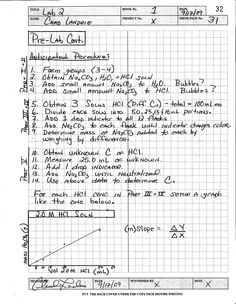 TITLE Lab 2 BOOK NO. 1 DATE 9/17/09 32
NAME Chad Landrie PROJECT NO. X FROM PAGE NO. 31
Pre-Lab Cont.
Anticipated Procedures:
Part I-II
1. Form groups (3-4)
2. Obtain Na2CO3, H2O, + HCl soln
3. Add small amount Na2CO3 to H2O. Bubbles?
4. Add small amount Na2CO3 to HCl. Bubbles?
Part III-IV
5. Obtain 3 Solns HCl (Diff. C's) - total = 100mL ea
6. Divide each soln into 50, 25, 15 + 10mL portions.
7. Add 3 drop indicator to all 12 flasks
8. Add Na2CO3 to each flask until indicator changes color.
9. Determine mass of Na2CO3 added to each by
weighing by differences.
Part V
10. Obtain unknown C of HCl.
11. Measure 25.0 mL of unknown.
12. Add 1 drop indicator.
13. Add Na2CO3 until neutralized.
14. Use above data to determine C.
For each HCl conc. in Part III + IV setup a graph
like the one below.
2.0 M HCl Soln
mass Na2CO3 (g)
(m)Slope = ΔY
ΔX
0 Vol 2.0M HCl (mL)
9/17/09 X X
PUT THE BACK COVER UNDER THE COPY PAGE BEFORE WRITING